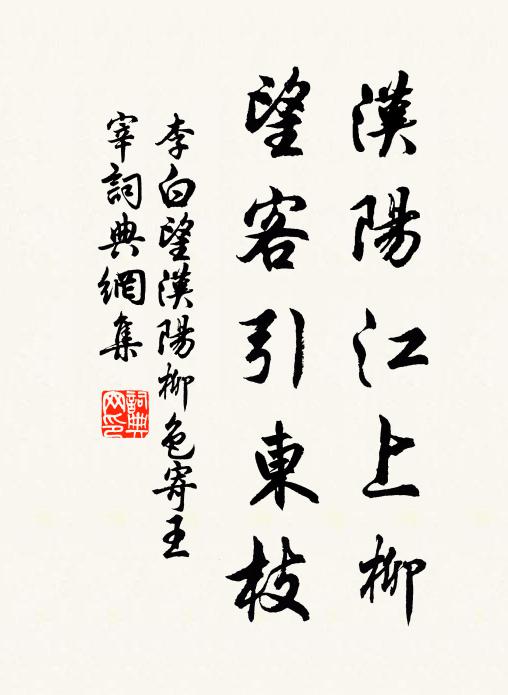 漢陽江上柳
望客引東枝
李白望漢陽柳色寄王
宰詞典網集
詞典
网印